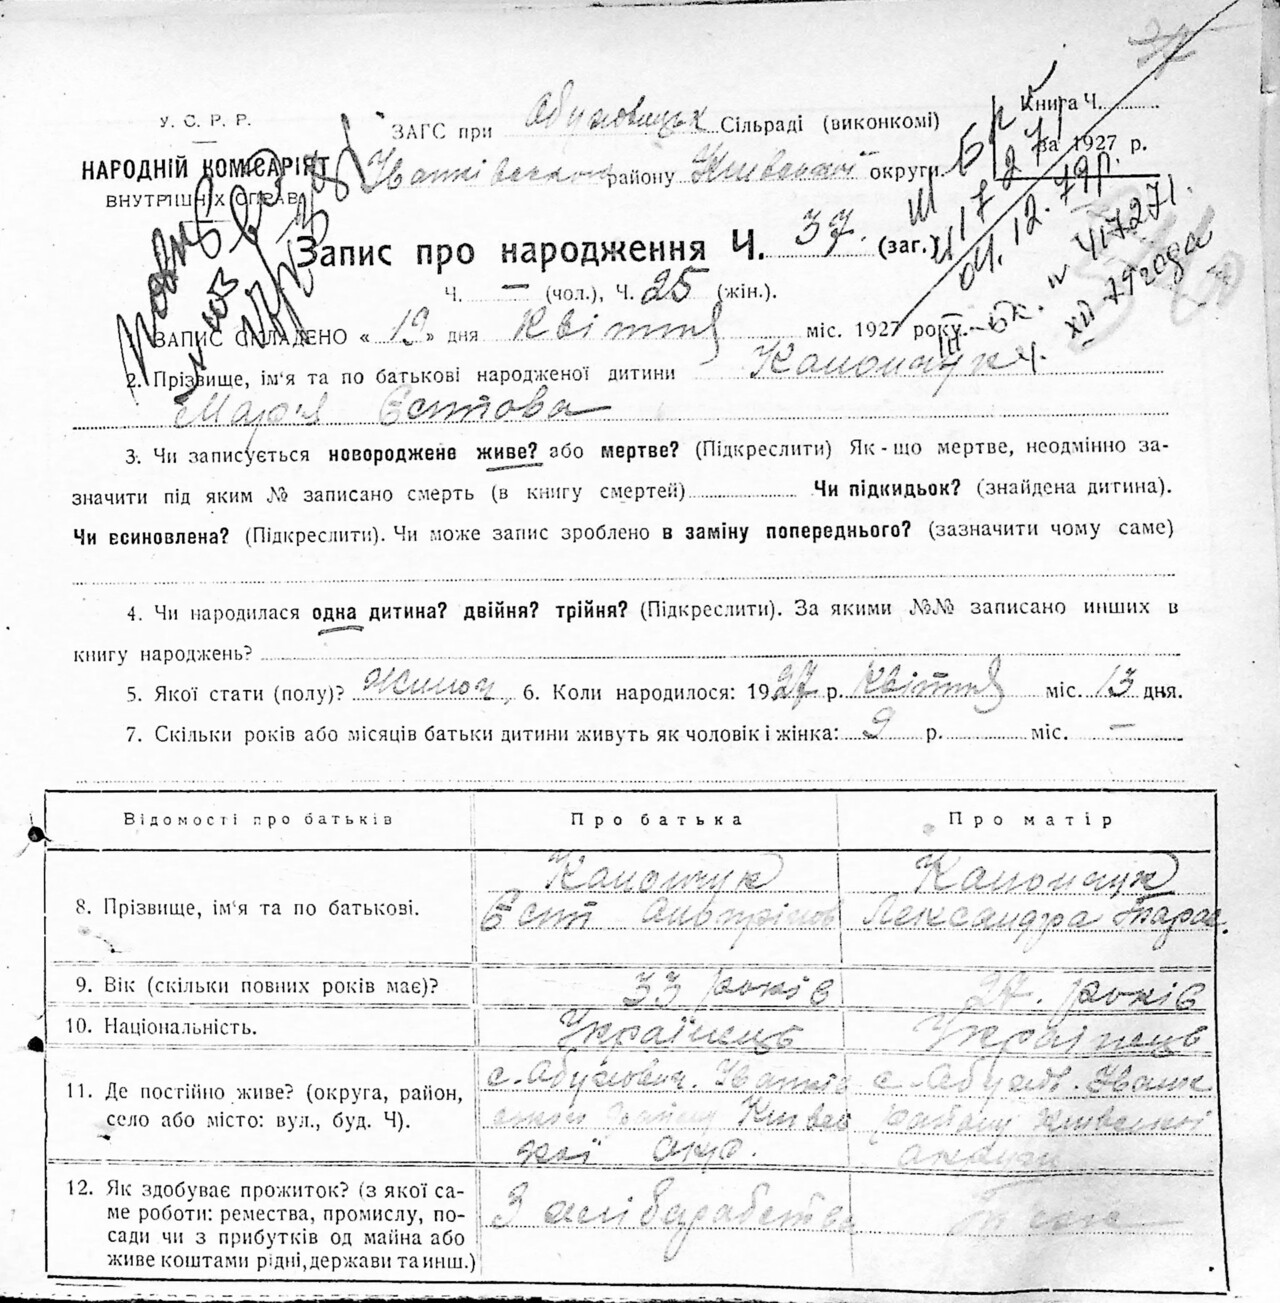 У. С. Р. Р.
НАРОДНІЙ КОМІСАРІЯТ
ВНУТРІШНІХ СПРАВ
ЗАГС при Обуховицьк Сільраді (виконкомі)
Іванківського району Київської округи.
Книга Ч.
за 1927 р.
Запис про народження Ч. 37. (заг.)
Ч. — (чол.), Ч. 25 (жін.).
04.12.79р.
№ 417271.
XII 79 года
ЗАПИС СКЛАДЕНО « 19 » дня квітня міс. 1927 року.
2. Прізвище, ім'я та по батькові народженої дитини
Марія
3. Чи записується новороджене живе? або мертве? (Підкреслити) Як-що мертве, неодмінно за-
значити під яким № записано смерть (в книгу смертей) Чи підкидьок? (знайдена дитина).
Чи всиновлена? (Підкреслити). Чи може запис зроблено в заміну попереднього? (зазначити чому саме)
4. Чи народилася одна дитина? двійня? трійня? (Підкреслити). За якими №№ записано инших в
книгу народжень?
5. Якої стати (полу)? 6. Коли народилося: 1927 р. квітня міс. 13 дня.
7. Скільки років або місяців батьки дитини живуть як чоловік і жінка: 9 р. міс. —
Відомості про батьків Про батька Про матір
8. Прізвище, ім'я та по батькові.
Лександра Тарас.
9. Вік (скільки повних років має)? 33 років 27. років
10. Національність. Українець Українець
11. Де постійно живе? (округа, район,
село або місто: вул., буд. Ч).
району Київської
округи
12. Як здобуває прожиток? (з якої са-
ме роботи: ремества, промислу, по-
сади чи з прибутків од майна або
живе коштами рідні, держави та инш.)